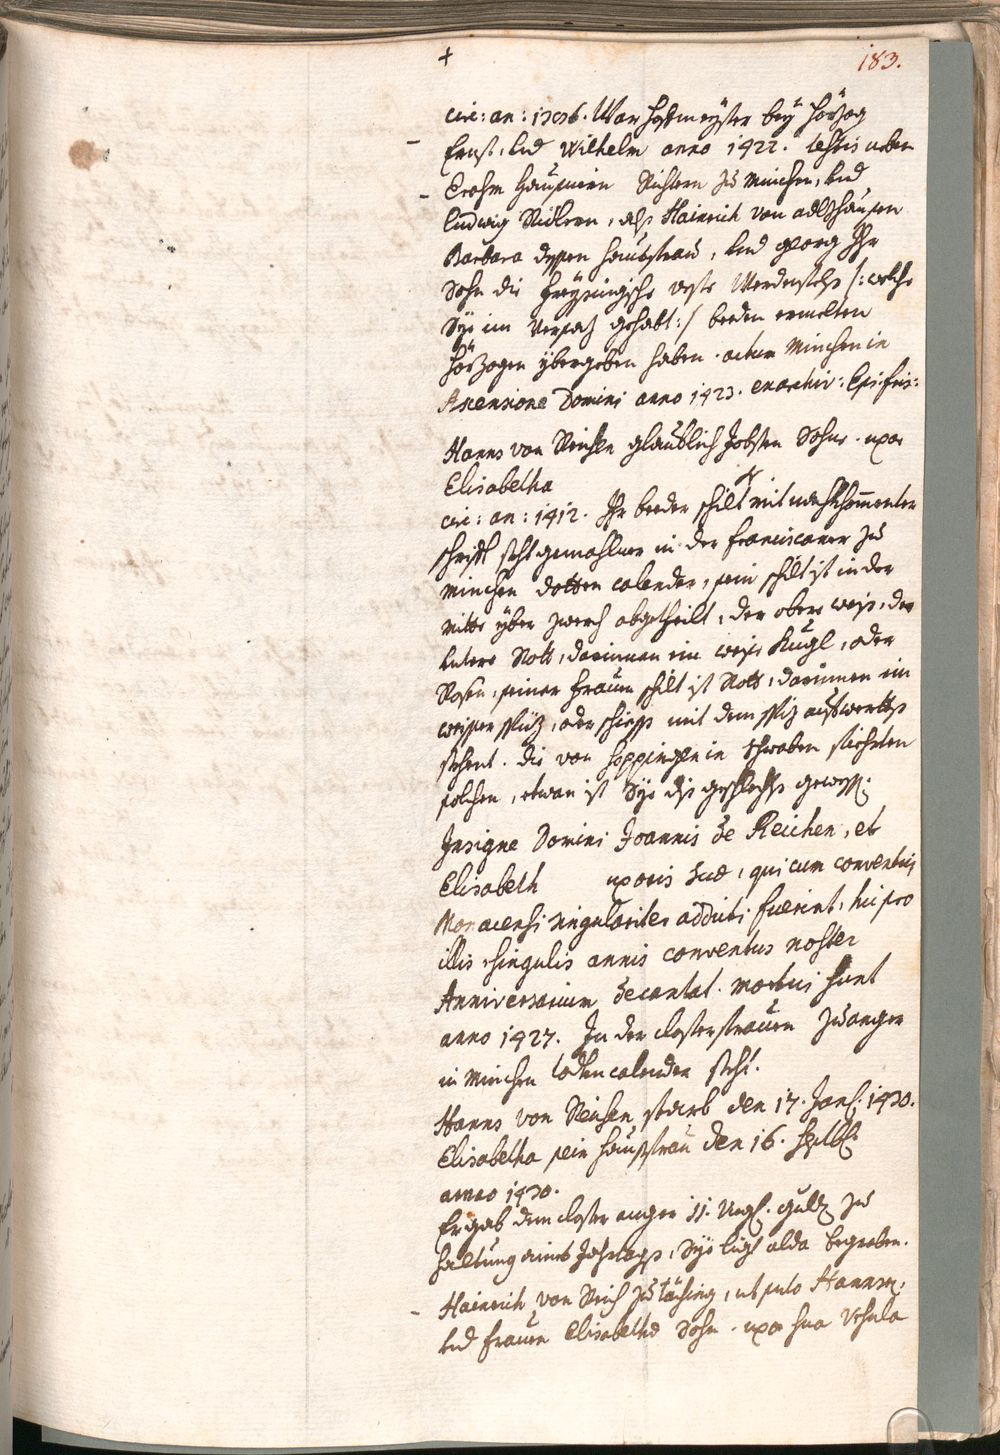 +
183.
circ: an: 1396. War Hofmeyster bey Herzog
Ernst, und Wilhelm anno 1422. neben
Haüsmien Richtern zu Minchen, und
Ludwig Ridlern, als Hainrich von adlzhausen
Barbara dessen Hausfraw, und georg Ihr
Sohn die Freysingische veste Werdenfels /: welche
Sye im Versaz gehabt :/ beeden ermelten
Herzogen ybergeben haben. actum Minchen in
Ascensione Domini anno 1423. ex archiv: Epi: fris:
Hanns von Reichen glaublich Jobsten Sohn. uxor
Elisabetha
circ: an: 1412. Ihr beeder schilt mit nachkommenter
schrifft steht gemahlner in der Franciscaner zu
Minchen dotten calender, sein schilt ist in der
mitte yber zwerch abgetheilt, der obere weis, der
untere Rott, darinnen ein weise Kugl, oder
Rosen, seiner Frauen schilt ist Rott, darinnen ein
weisser spiz, oder schieff mit dem spiz aufwerths
stehent. die von Hoppingen in Schwaben fiehrten
solchen, etwan ist Sye diss geschlechts gewest.
Insigne Domini Joannis de Reichen, et
Elisabeth uxoris suae, qui cum conventui
Monacensi singulariter adducti fuerint, hii pro
illis singulis annis conventus noster
Anniversarium decantat. mortui sunt
anno 1427. In der closterfrauen zu anger
in Minchen todten calender steht.
Hanns von Reichen starb den 17. Jan. 1430.
Elisabetha sein Hausfrau den 16. Septb.
anno 1430.
Er gab dem closter anger 51. Ung. guld. zu
Haltung eines Jahrtags, Sye ligt alda begraben.
Hainrich von Reich zu täching, ut puto Hannsen,
und Frauen Elisabetha Sohn. uxor sua Ursula